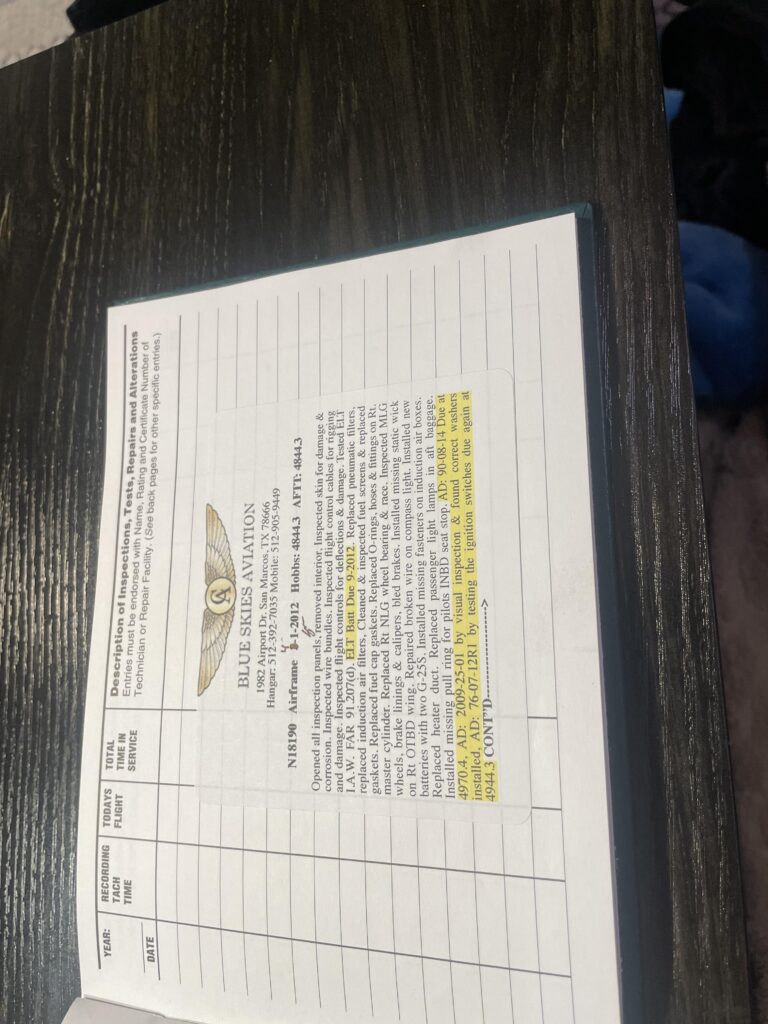 YEAR:
DATE
RECORDING
TACH
TIME
TODAYS
FLIGHT
TOTAL
TIME IN
SERVICE
Description of Inspections, Tests, Repairs and Alterations
Entries must be endorsed with Name, Rating and Certificate Number of
Technician or Repair Facility. (See back pages for other specific entries.)
BLUE SKIES AVIATION
1982 Airport Dr. San Marcos, TX 78666
Hangar: 512-392-7035 Mobile: 512-905-9449
N18190 Airframe -1-2012 Hobbs: 4844.3 AFTT: 4844.3
Opened all inspection panels, removed interior, Inspected skin for damage &
corrosion. Inspected wire bundles. Inspected flight control cables for rigging
and damage. Inspected flight controls for deflections & damage. Tested ELT
I.A.W. FAR 91.207(d). ELT Batt Due 9-2012. Replaced pneumatic filters,
replaced induction air filters, Cleaned & inspected fuel screens & replaced
gaskets. Replaced fuel cap gaskets. Replaced O-rings, hoses & fittings on Rt.
master cylinder. Replaced Rt NLG wheel bearing & race. Inspected MLG
wheels, brake linings & calipers, bled brakes. Installed missing static wick
on Rt OTBD wing. Repaired broken wire on compass light. Installed new
batteries with two G-25S. Installed missing fasteners on induction air boxes.
Replaced heater duct. Replaced passenger light lamps in aft baggage.
Installed missing pull ring for pilots INBD seat stop. AD: 90-08-14 Due at
4970.4. AD: 2009-25-01 by visual inspection & found correct washers
installed. AD: 76-07-12R1 by testing the ignition switches due again at
4944.3 CONT'D----------------------->